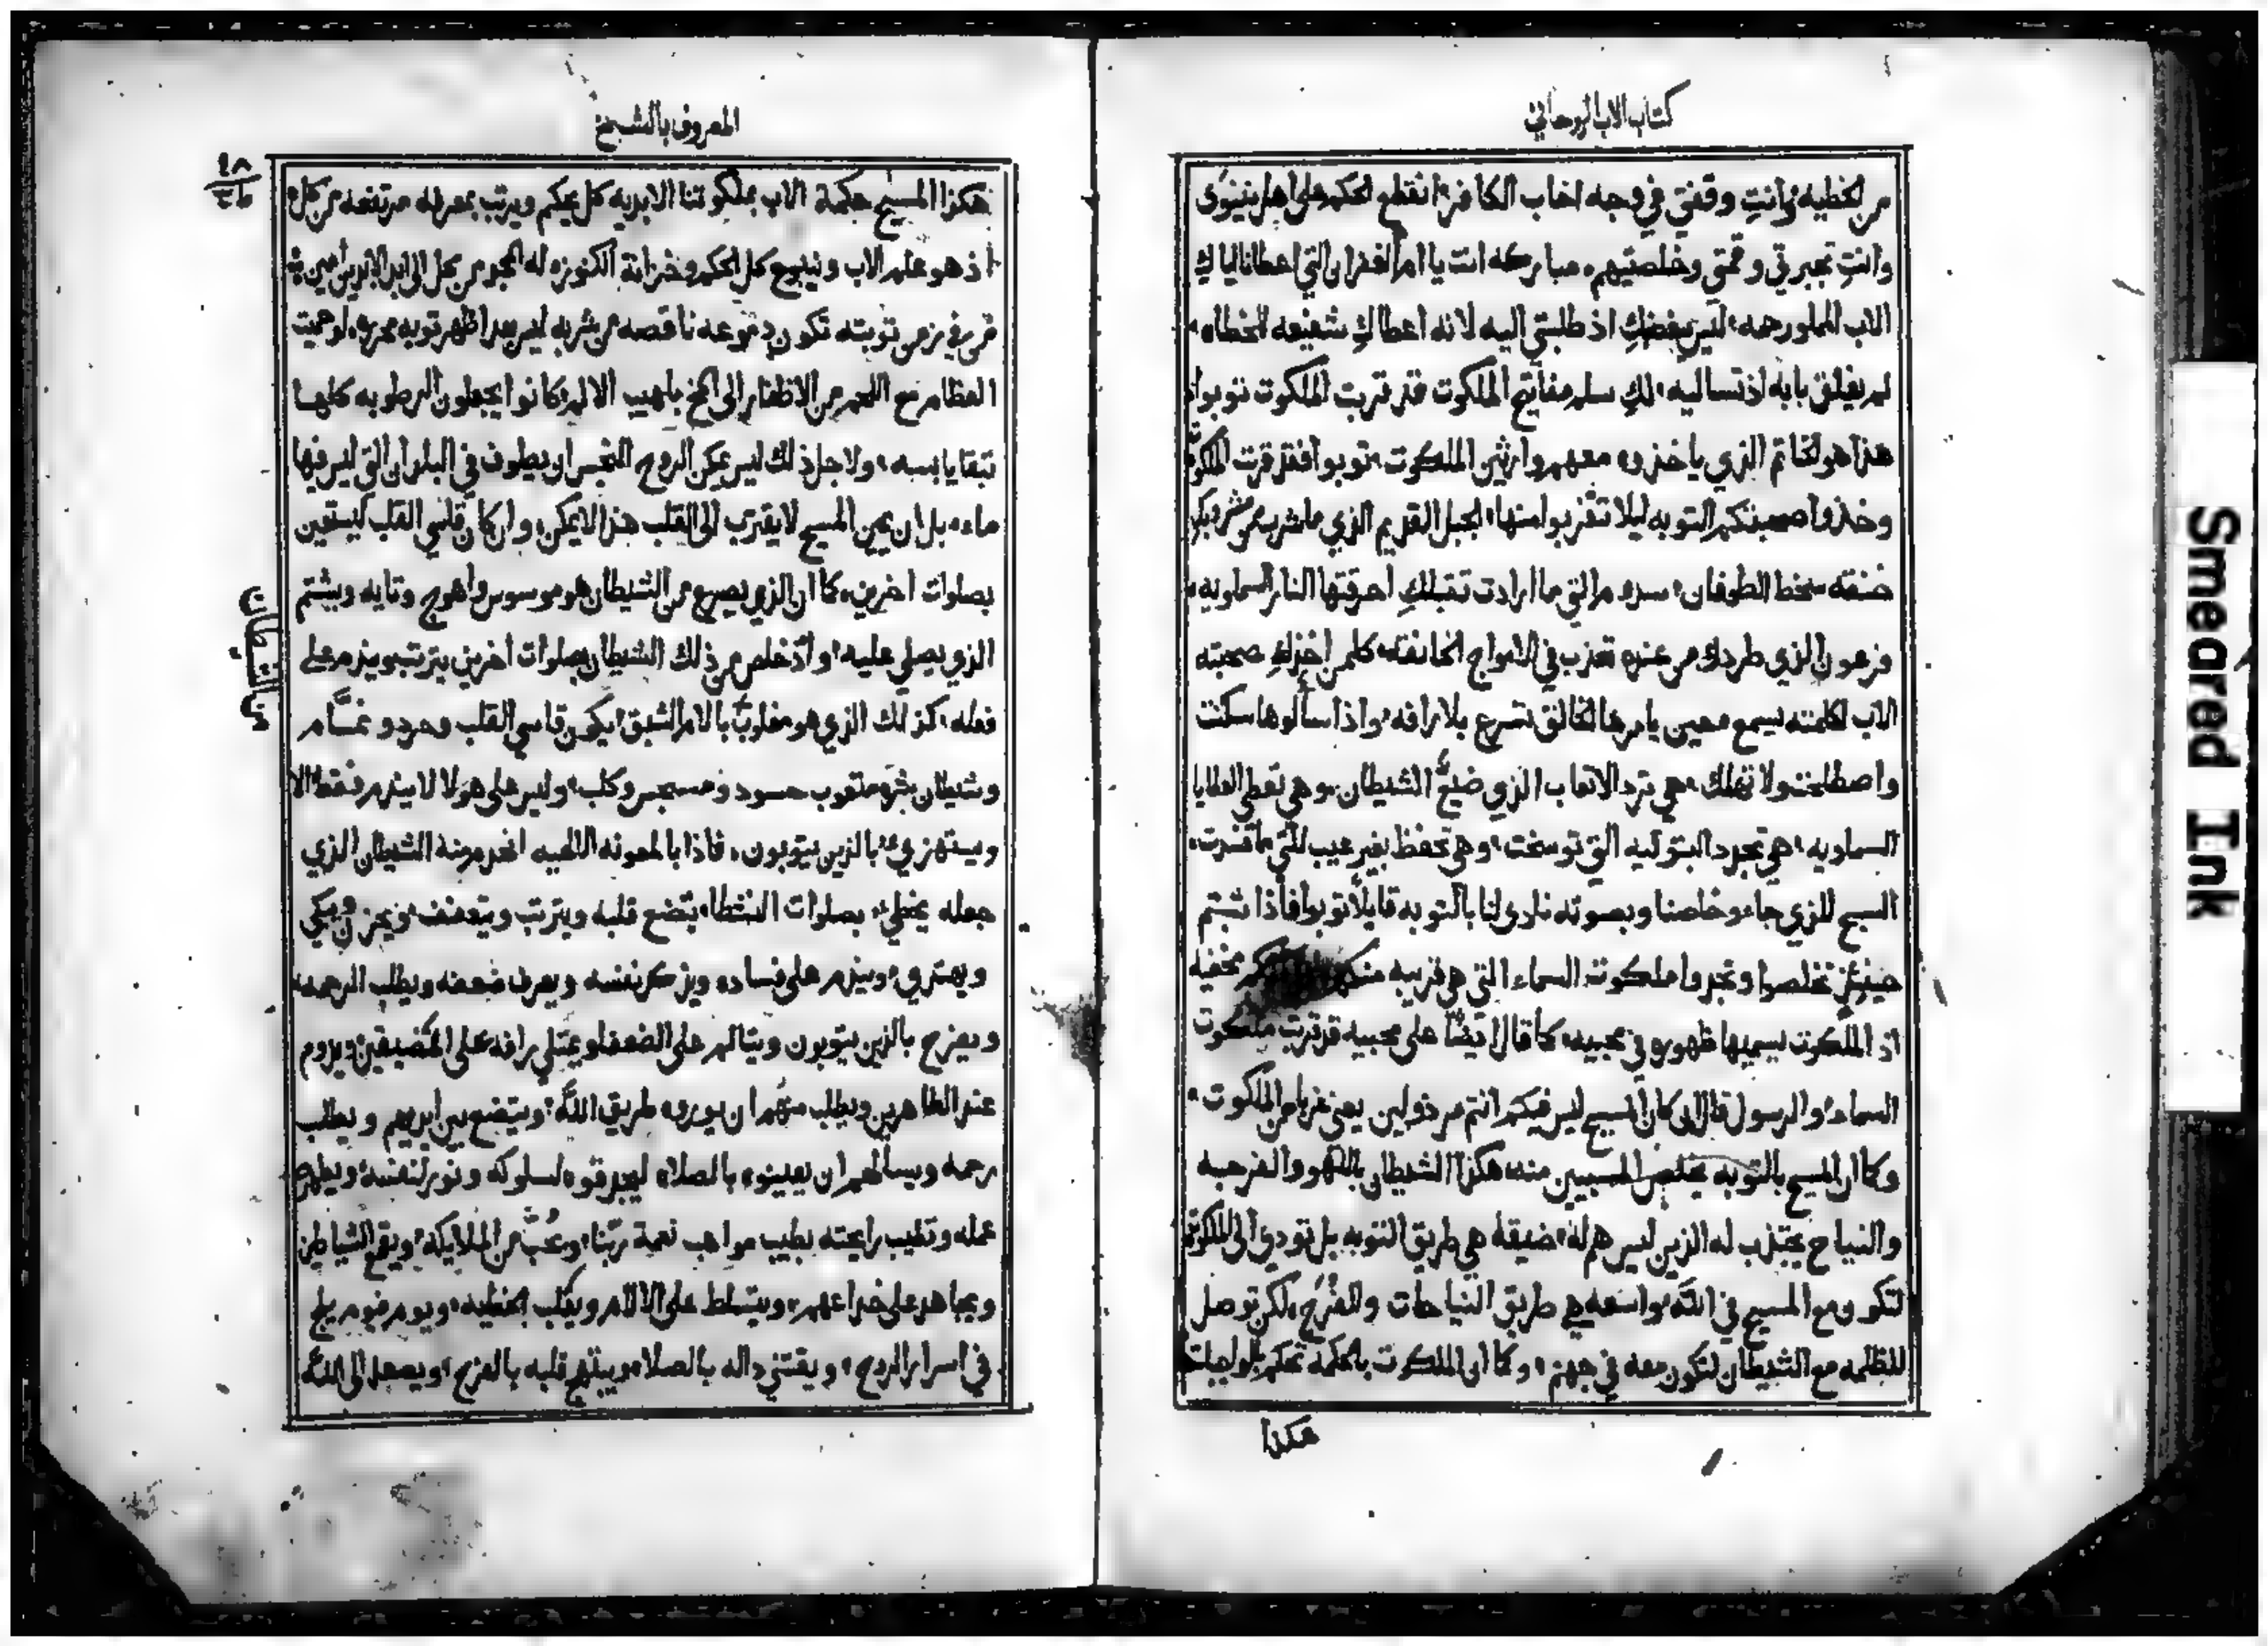 كتاب الاب الروحاني
من الخطيه وانتِ وقفتي في وجه اخاب الكافر انقطع الحكم على اهل نينوى
وانتِ تجبرتي وقمتي وخلصتيهم مباركه انت يا ام الغفران التي اعطانا اياكِ
الاب المملو رحمه ليس يغضبكِ اذ طلبتي اليه لانه اعطاكِ شفيعه للخطاه
لم يغلق بابه اذ تساليه لكِ سلم مفاتيح الملكوت قد قربت الملكوت توبوا
هذا هو الخاتم الذي ياخذوه معهم وارثين الملكوت توبوا فقد قربت الملكوت
وخذوا صبغتكم التوبه ليلا تقربوا منها الجبل القديم الذي ما شرب من مشروبكِ
خنقه سخط الطوفان سدوم التي ما ارادت تقبلكِ احرقتها النار السماويه
فرعون الذي طردك من عنده تعذب في الامواج الخانقه كلمن اخذكِ صحبته
الاب لكلمته يسمع محين يامرها الخالق تسرع بلا رافه واذا سألوها سكنت
واصطلحت ولا تهلك هي ترد الاتعاب الذي ضيع الشيطان وهي تعطي العطايا
السماويه هي تجدد البتوليه التي توسخت وهي تحفظ بغير عيب للتي ما فسدت
المسيح الذي جاء وخلصنا وبصوته نادى لنا بالتوبه قايلا توبوا فاذا تبتم
حينئذ تخلصوا وتجدوا ملكوت السماء التي هي قريبه منكم مخفيه
اذ الملكوت يسميها ظهوره في محبيه كما قال ايضًا على محبيه قد قربت ملكوت
السماء والرسول قال ان كان المسيح ليس فيكم انتم مرذولين يعني غربا من الملكوت
وكما ان المسيح بالتوبه يخلص المسبيين منه هكذا الشيطان باللهو والفرجه
والنياح يجتذب له الذين ليس هم له ضيقه هي طريق التوبه بل تودي الى الملكوت
لتكون مع المسيح في الله واسعه هي طريق النياحات والفرَح لكن توصل
للظلمه مع الشيطان لتكون معه في جهنم وكما ان الملكوت بالحكمة تحكم بالواجبات
هكذا
المعروف بالشيخ
هكذا المسيح حكمة الاب بملكوتنا الابديه كل يحكم ويرتب بمعرفه مرتفعه من كل
اذ هو علم الاب وينبوع كل الحكم وخزانة الكنوز له المجد من كل الى ابد الابدين امين
من في زمن توبته تكون دموعه ناقصه من شربه ليس بعد اظهر توبه محرره لو حميت
العظام مع اللحم من الاظفار الى المخ بلهيب الالم كانوا يجعلون الرطوبه كلها
تبقا يابسه ولاجل ذلك ليس يمكن الروح النجس ان يطوف في البلدان التي ليس فيها
ماء بل ان يمين المسيح لا يقترب الى القلب هذا لا يمكن وان كان قاسي القلب ليستعين
بصلوات اخرين كما ان الذي يصرع من الشيطان هو موسوس واهوج وتايه ويشتم
الذي يصلي عليه واذ خلص من ذلك الشيطان بصلوات اخرين يترتب ويندم على
فعله كذلك الذي هو مغلوب بالام الشبق يكون قاسي القلب وحرد ونمَّام
وشيطان بشره متعوب حسود ومسجس وكلب وليس على هولا لا يندم فقط الا
ويستهزيء بالذين يتوبون فاذا بالمعونه الالهيه انحدر منه الشيطان الذي
جعله يخطي بصلوات النشطاء يتضع قلبه ويترتب ويتعفف ويحزن ويبكي
ويهتدي ويندم على فساده ويذكر نفسه ويعرف ضعفه ويطلب الرحمه
ويفرح بالذين يتوبون ويتالم على الضعفا ويمتلي رافه على المضيقين ويدوم
عند الطاهرين ويطلب منهم ان يوروه طريق الله ويتضع بين ايديهم ويطلب
رحمه ويسالهم ان يعينوه بالصلاه ليجد قوه لسلوكه ونور لنفسه ويطهر
عمله وتطيب رايحته بطيب مواهب نعمة ربّنا ويحُبّ من الملايكة ويقمع الشياطين
ويجاهد على خداعهم ويتسلط على الالام ويكلب الخطيه ويوم فيوم يلج
في اسرار الروح ويقتني داله بالصلاه ويبتهج قلبه بالفرح ويصعد الى الله